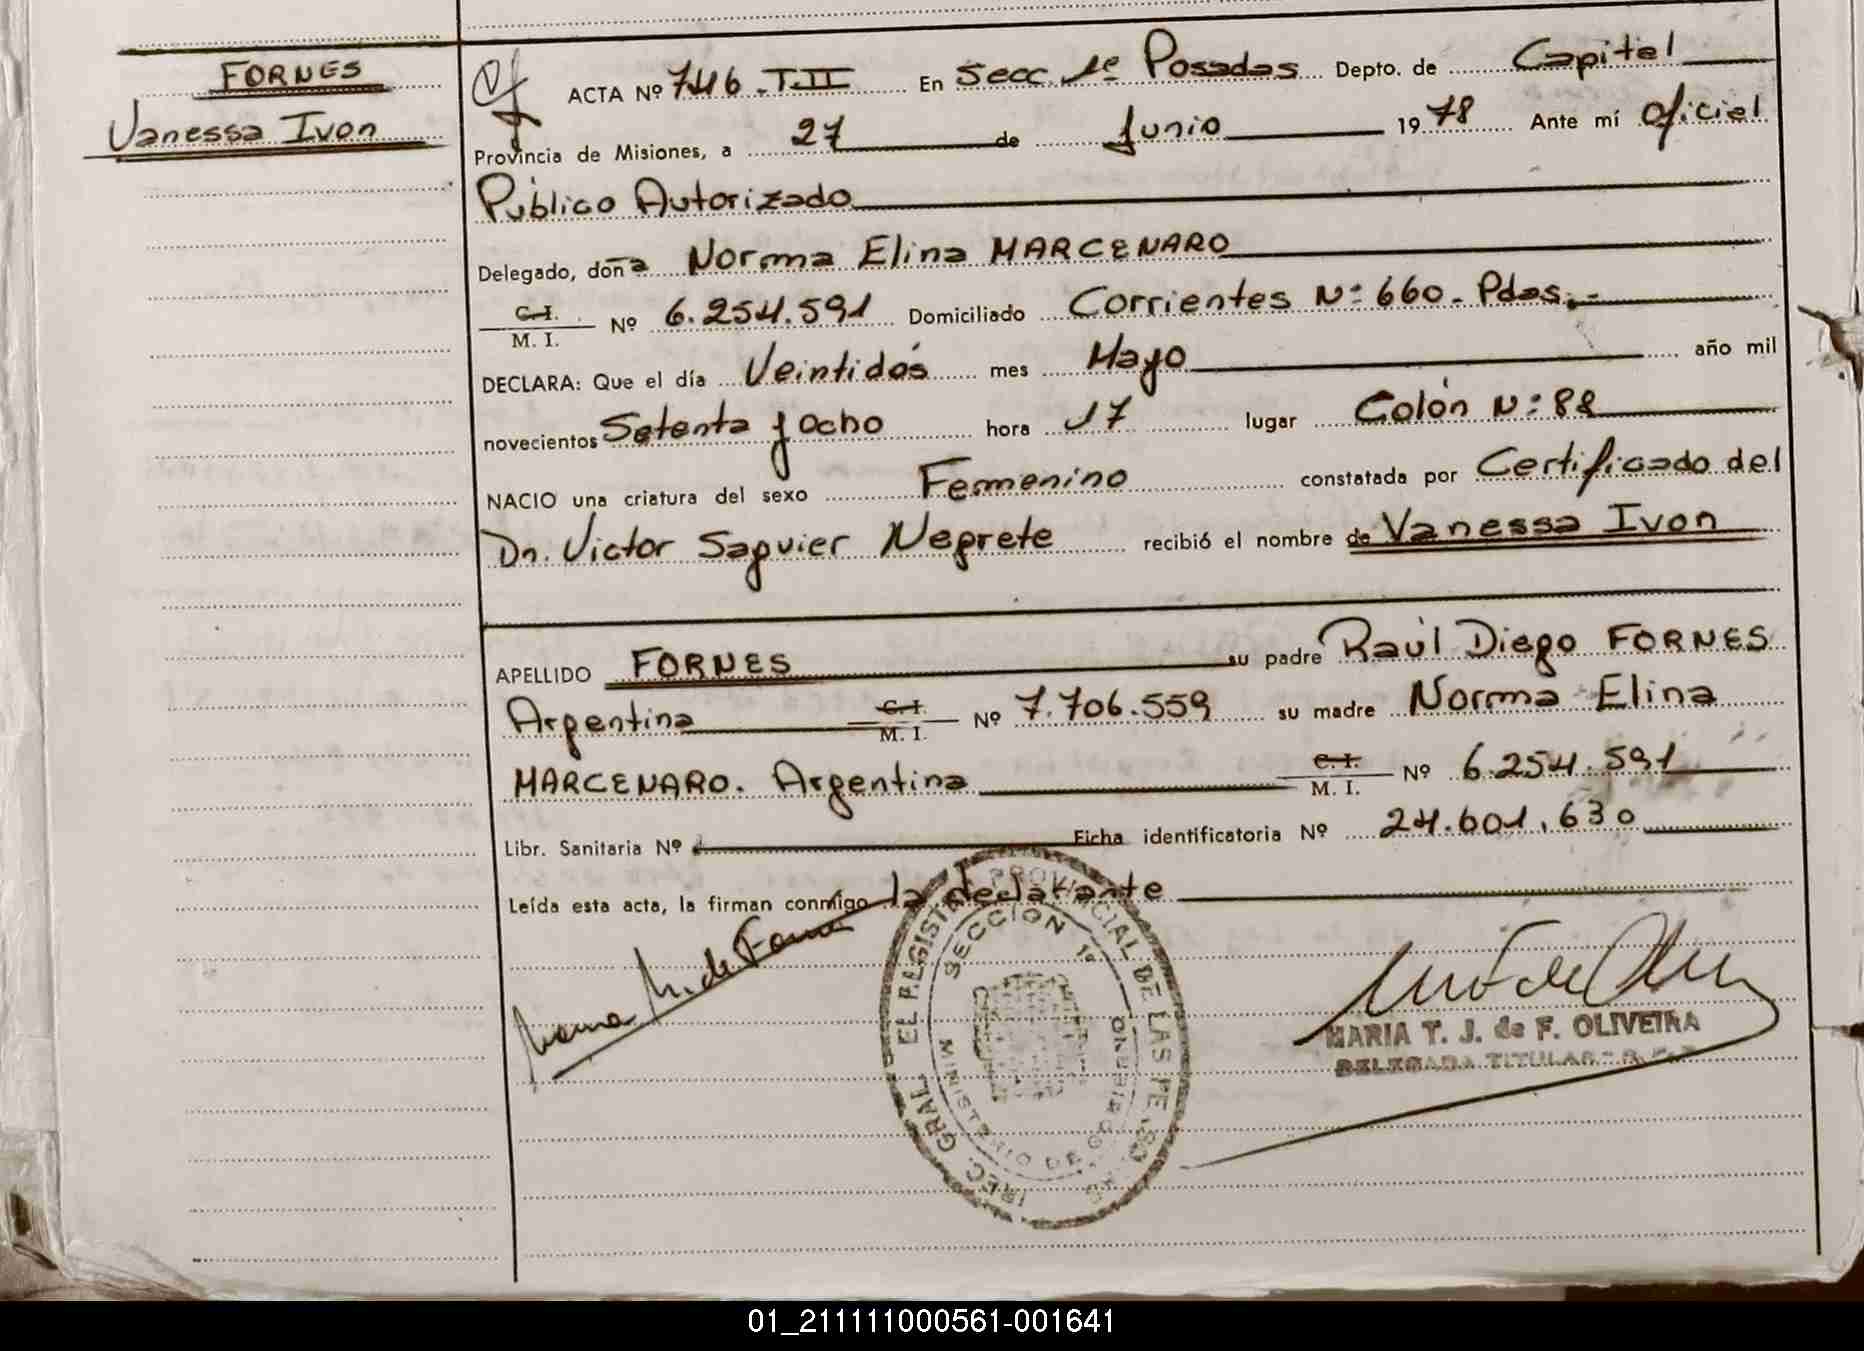 FORNES
Vanessa Ivon
ACTA Nº 746. T.II En Secc. 1º Posadas Depto. de Capital
Provincia de Misiones, a 27 de Junio 1978 Ante mí Oficial
Público Autorizado
Delegado, doña Norma Elina MARCENARO
C.I.
M. I. Nº 6.254.591 Domiciliado Corrientes Nº 660. Pdas.-
DECLARA: Que el día Veintidós mes Mayo año mil
novecientos Setenta y Ocho hora 17 lugar Colón Nº 88
NACIO una criatura del sexo Femenino constatada por Certificado del
Dr. Victor Saguier Negrete recibió el nombre de Vanessa Ivon
APELLIDO FORNES su padre Raúl Diego FORNES
Argentina C.I. M. I. Nº 7.706.559 su madre Norma Elina
MARCENARO. Argentina C.I. M. I. Nº 6.254.591
Libr. Sanitaria Nº Ficha identificatoria Nº 24.601.630
Leída esta acta, la firman conmigo la declarante
Norma M. de Fornes
SECCION 1ª
MINISTERIO DE GOBIERNO
MARIA T. J. de F. OLIVEIRA
DELEGADA TITULAR
01_211111000561-001641